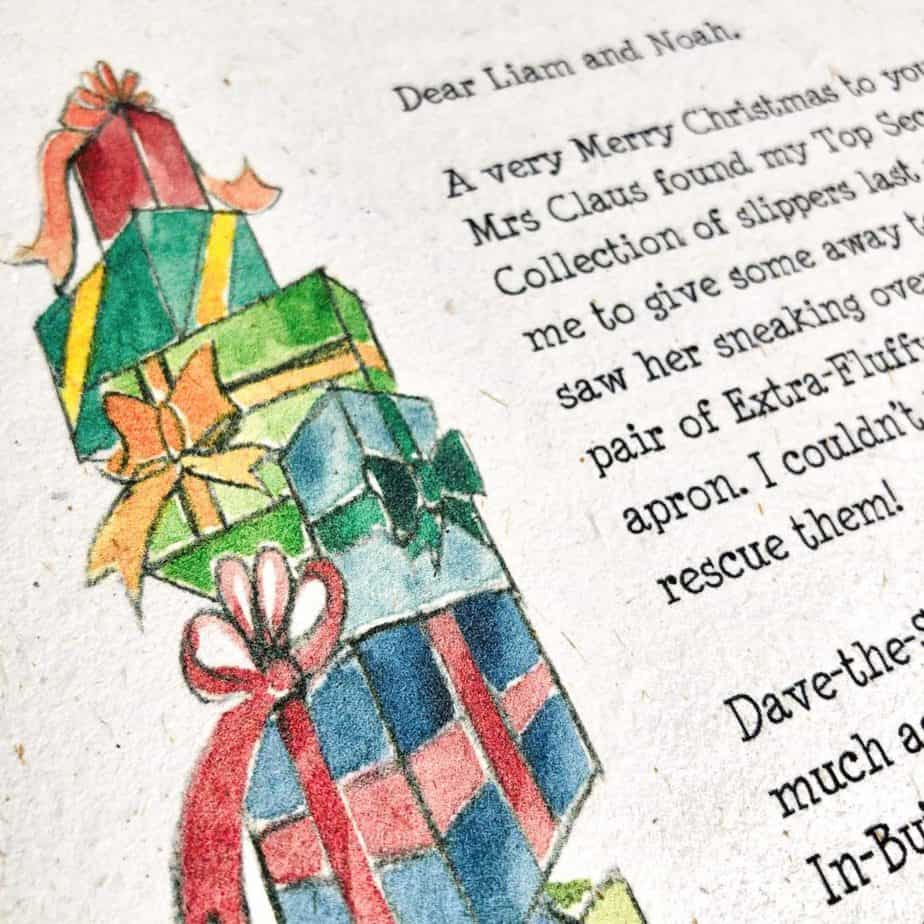 Dear Liam and Noah.
A very Merry Christmas to you
Mrs Claus found my Top Sec
Collection of slippers last
me to give some away t
saw her sneaking ove
pair of Extra-Fluffy
apron. I couldn't
rescue them!
Dave-the-
much a
In-Bu